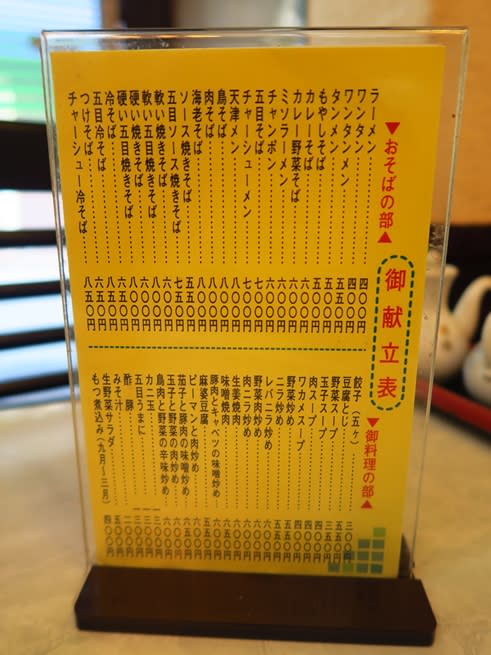 御献立表
▼おそばの部▲
ラーメン 四〇〇円
ワンタン 四〇〇円
ワンタンメン 五五〇円
タンメン 五五〇円
もやしそば 五〇〇円
カレーそば 五〇〇円
カレー野菜そば 六〇〇円
ミソラーメン 六〇〇円
チャンポン 六〇〇円
五目そば 七〇〇円
チャーシューメン 七〇〇円
天津メン 八〇〇円
鳥そば 八〇〇円
肉そば 八〇〇円
海老そば 八〇〇円
ソース焼きそば 五五〇円
五目ソース焼きそば 七五〇円
軟い焼きそば 六〇〇円
軟い五目焼きそば 八〇〇円
硬い焼きそば 六〇〇円
硬い五目焼きそば 八〇〇円
冷そば 六五〇円
五目冷そば 八五〇円
つけそば 六五〇円
チャーシュー冷そば 八五〇円
▼御料理の部▲
餃子（五ヶ） 三〇〇
豆腐とじ
野菜スープ
玉子スープ
肉スープ 四〇〇円
ワカメスープ 四〇〇円
野菜炒め 五五〇円
ニラ炒め 五五〇円
レバニラ炒め
野菜肉炒め 六〇〇円
肉ニラ炒め 六〇〇円
生姜焼肉
味噌焼肉
豚肉とキャベツの味噌炒め
麻婆豆腐
ピーマンと肉炒め
茄子と豚肉の味噌炒め
玉子と野菜の肉炒め
鳥肉と野菜の辛味炒め
カニ玉
五目うまに
酢豚
みそ汁
生野菜サラダ
もつ煮込み（九月〜三月） 四〇〇円